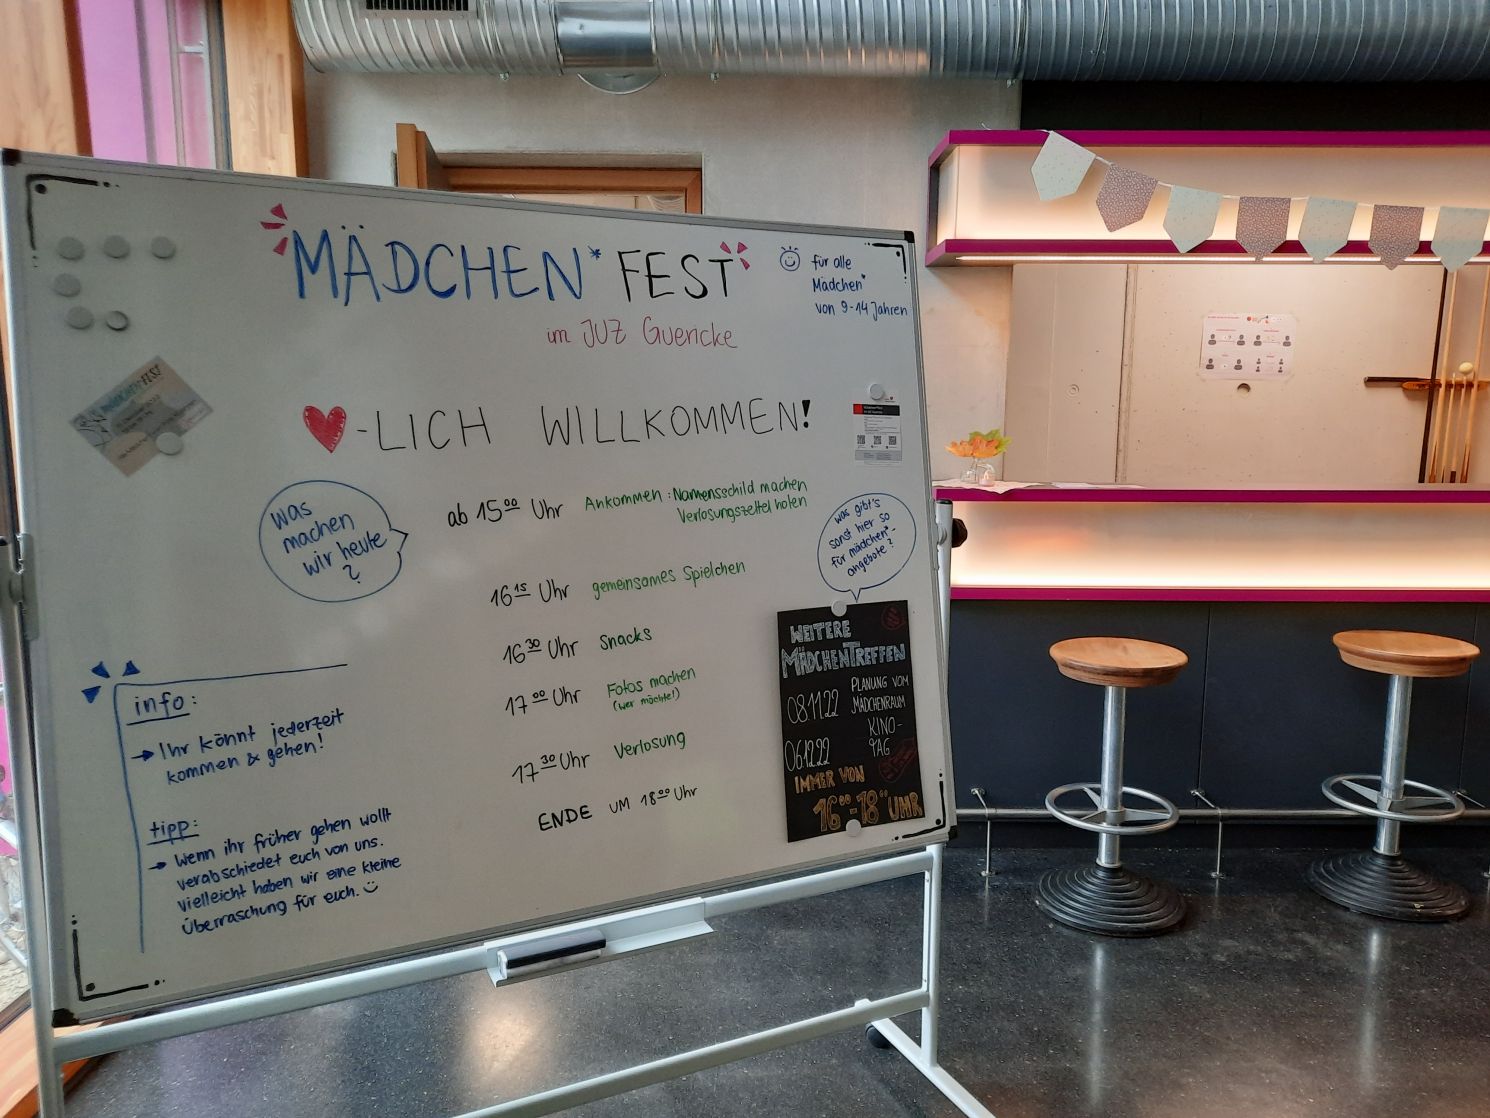 MÄDCHEN* FEST
im JUZ Guericke
für alle
Mädchen*
von 9-14 Jahren
MÄDCHEN*FEST
-LICH WILLKOMMEN!
was
machen
wir heute
?
ab 15⁰⁰ Uhr Ankommen: Namensschild machen
Verlosungszettel holen
16¹⁵ Uhr gemeinsames Spielchen
16³⁰ Uhr Snacks
17⁰⁰ Uhr Fotos machen
(wer möchte!)
17³⁰ Uhr Verlosung
ENDE UM 18⁰⁰ Uhr
was gibt's
sonst hier so
für mädchen*-
angebote?
WEITERE
MÄDCHENTREFFEN
08.11.22 PLANUNG VOM
MÄDCHENRAUM
06.12.22 KINO-
TAG
IMMER VON
16⁰⁰-18⁰⁰ UHR
info:
→ Ihr könnt jederzeit
kommen & gehen!
tipp:
→ Wenn ihr früher gehen wollt
verabschiedet euch von uns.
vielleicht haben wir eine kleine
Überraschung für euch.